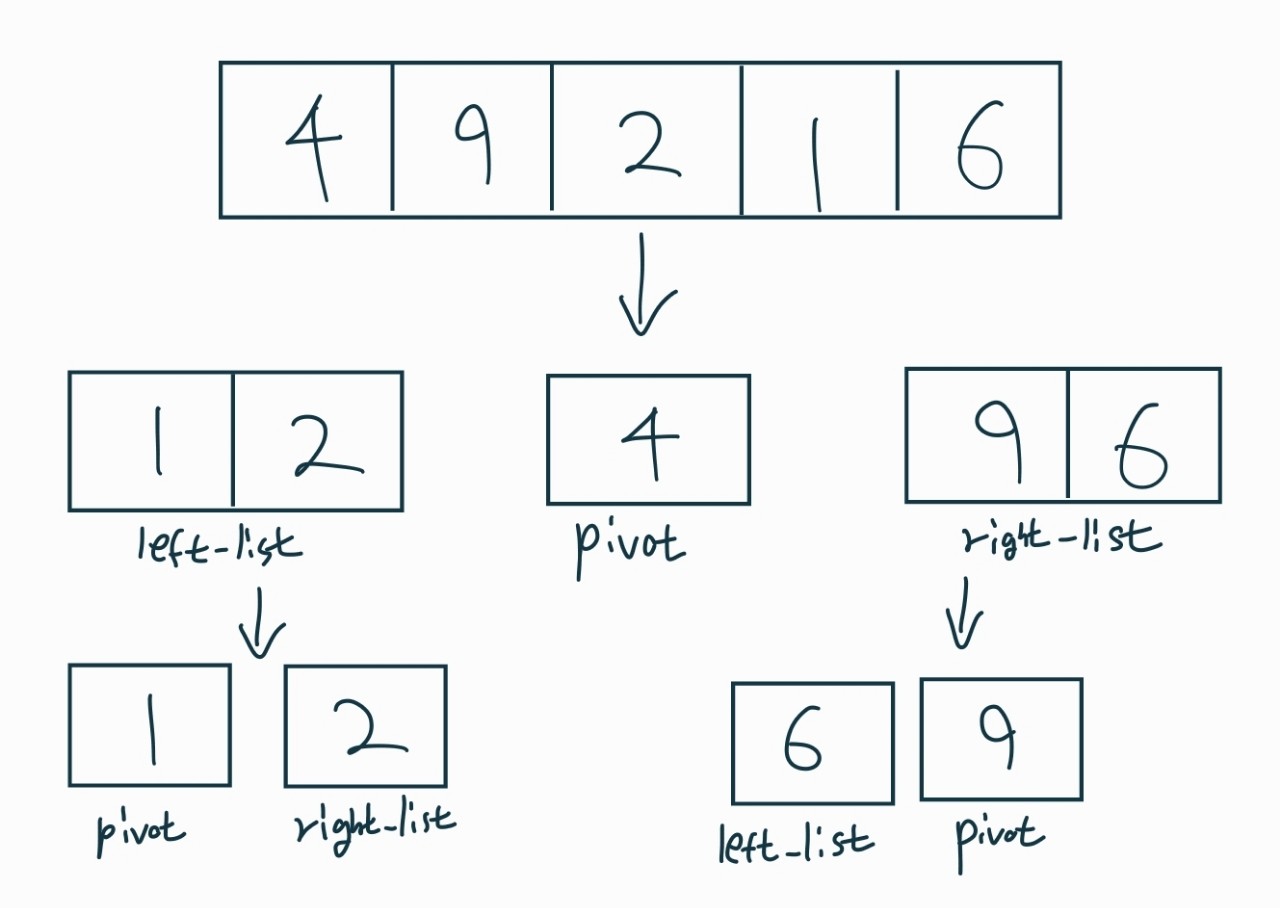 4 9 2 1 6
1 2
4
9 6
left-list
pivot
right-list
1
2
6
9
pivot
right-list
left-list
pivot